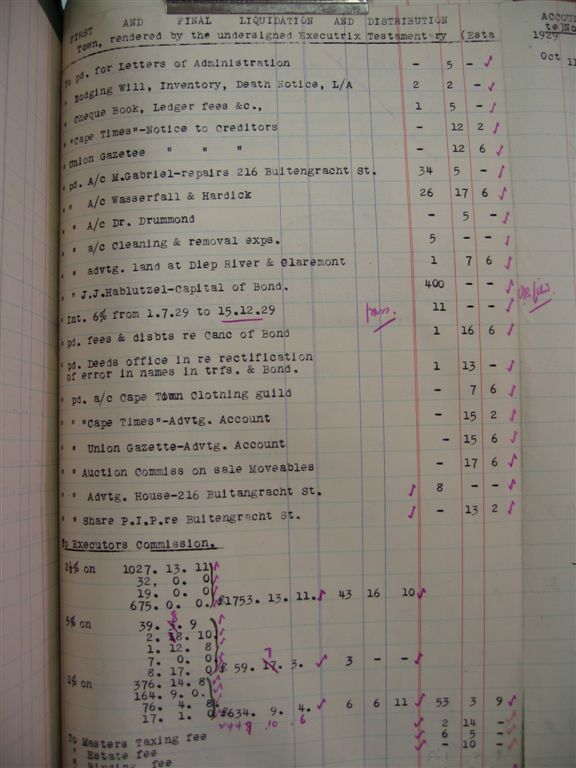 FIRST AND FINAL LIQUIDATION AND DISTRIBUTION ACCOU
Town, rendered by the undersigned Executrix Testamentary (Esta te)No
1929
To pd. for Letters of Administration - 5 - Oct 11
" Lodging Will, Inventory, Death Notice, L/A 2 2 -
" Cheque Book, Ledger fees &c., 1 5 -
" "Cape Times"-Notice to creditors - 12 2
" Union Gazetee " " " - 12 6
" pd. A/c M.Gabriel-repairs 216 Buitengracht St. 34 5 -
" " A/c Wasserfall & Hardick 26 17 6
" " A/c Dr. Drummond - 5 -
" " a/c Cleaning & removal exps. 5 - -
" " advtg. land at Diep River & Claremont 1 7 6
" " J.J.Hablutzel-Capital of Bond. 400 - -
" Int. 6% from 1.7.29 to 15.12.29 11 - -
" pd. fees & disbts re Canc of Bond 1 16 6
" pd. Deeds office in re rectification
of error in names in trfs. & Bond. 1 13 -
" pd. a/c Cape Town Clothing guild - 7 6
" " "Cape Times"-Advtg. Account - 15 2
" " Union Gazette-Advtg. Account - 15 6
" " Auction Commiss on sale Moveables - 17 6
" " Advtg. House-216 Buitangracht St. 8 - -
" " Share P.I.P.re Buitengracht St. - 13 2
To Executors Commission.
2½% on 1027. 13. 11
32. 0. 0
19. 0. 0
675. 0. 0. £1753. 13. 11. 43 16 10
8
5% on 39. 3. 9
2. 18. 10
1. 12. 8
7. 0. 0 7
8. 17. 0 £ 59. 17. 3. 3 - -
1% on 376. 14. 8
164. 9. 0.
76. 4. 8.
17. 1. 0 £634. 9. 4. 6 6 11 53 3 9
10. 6
To Masters Taxing fee 2 14 -
" Estate fee 6 5 -
" Binding fee - 10 -